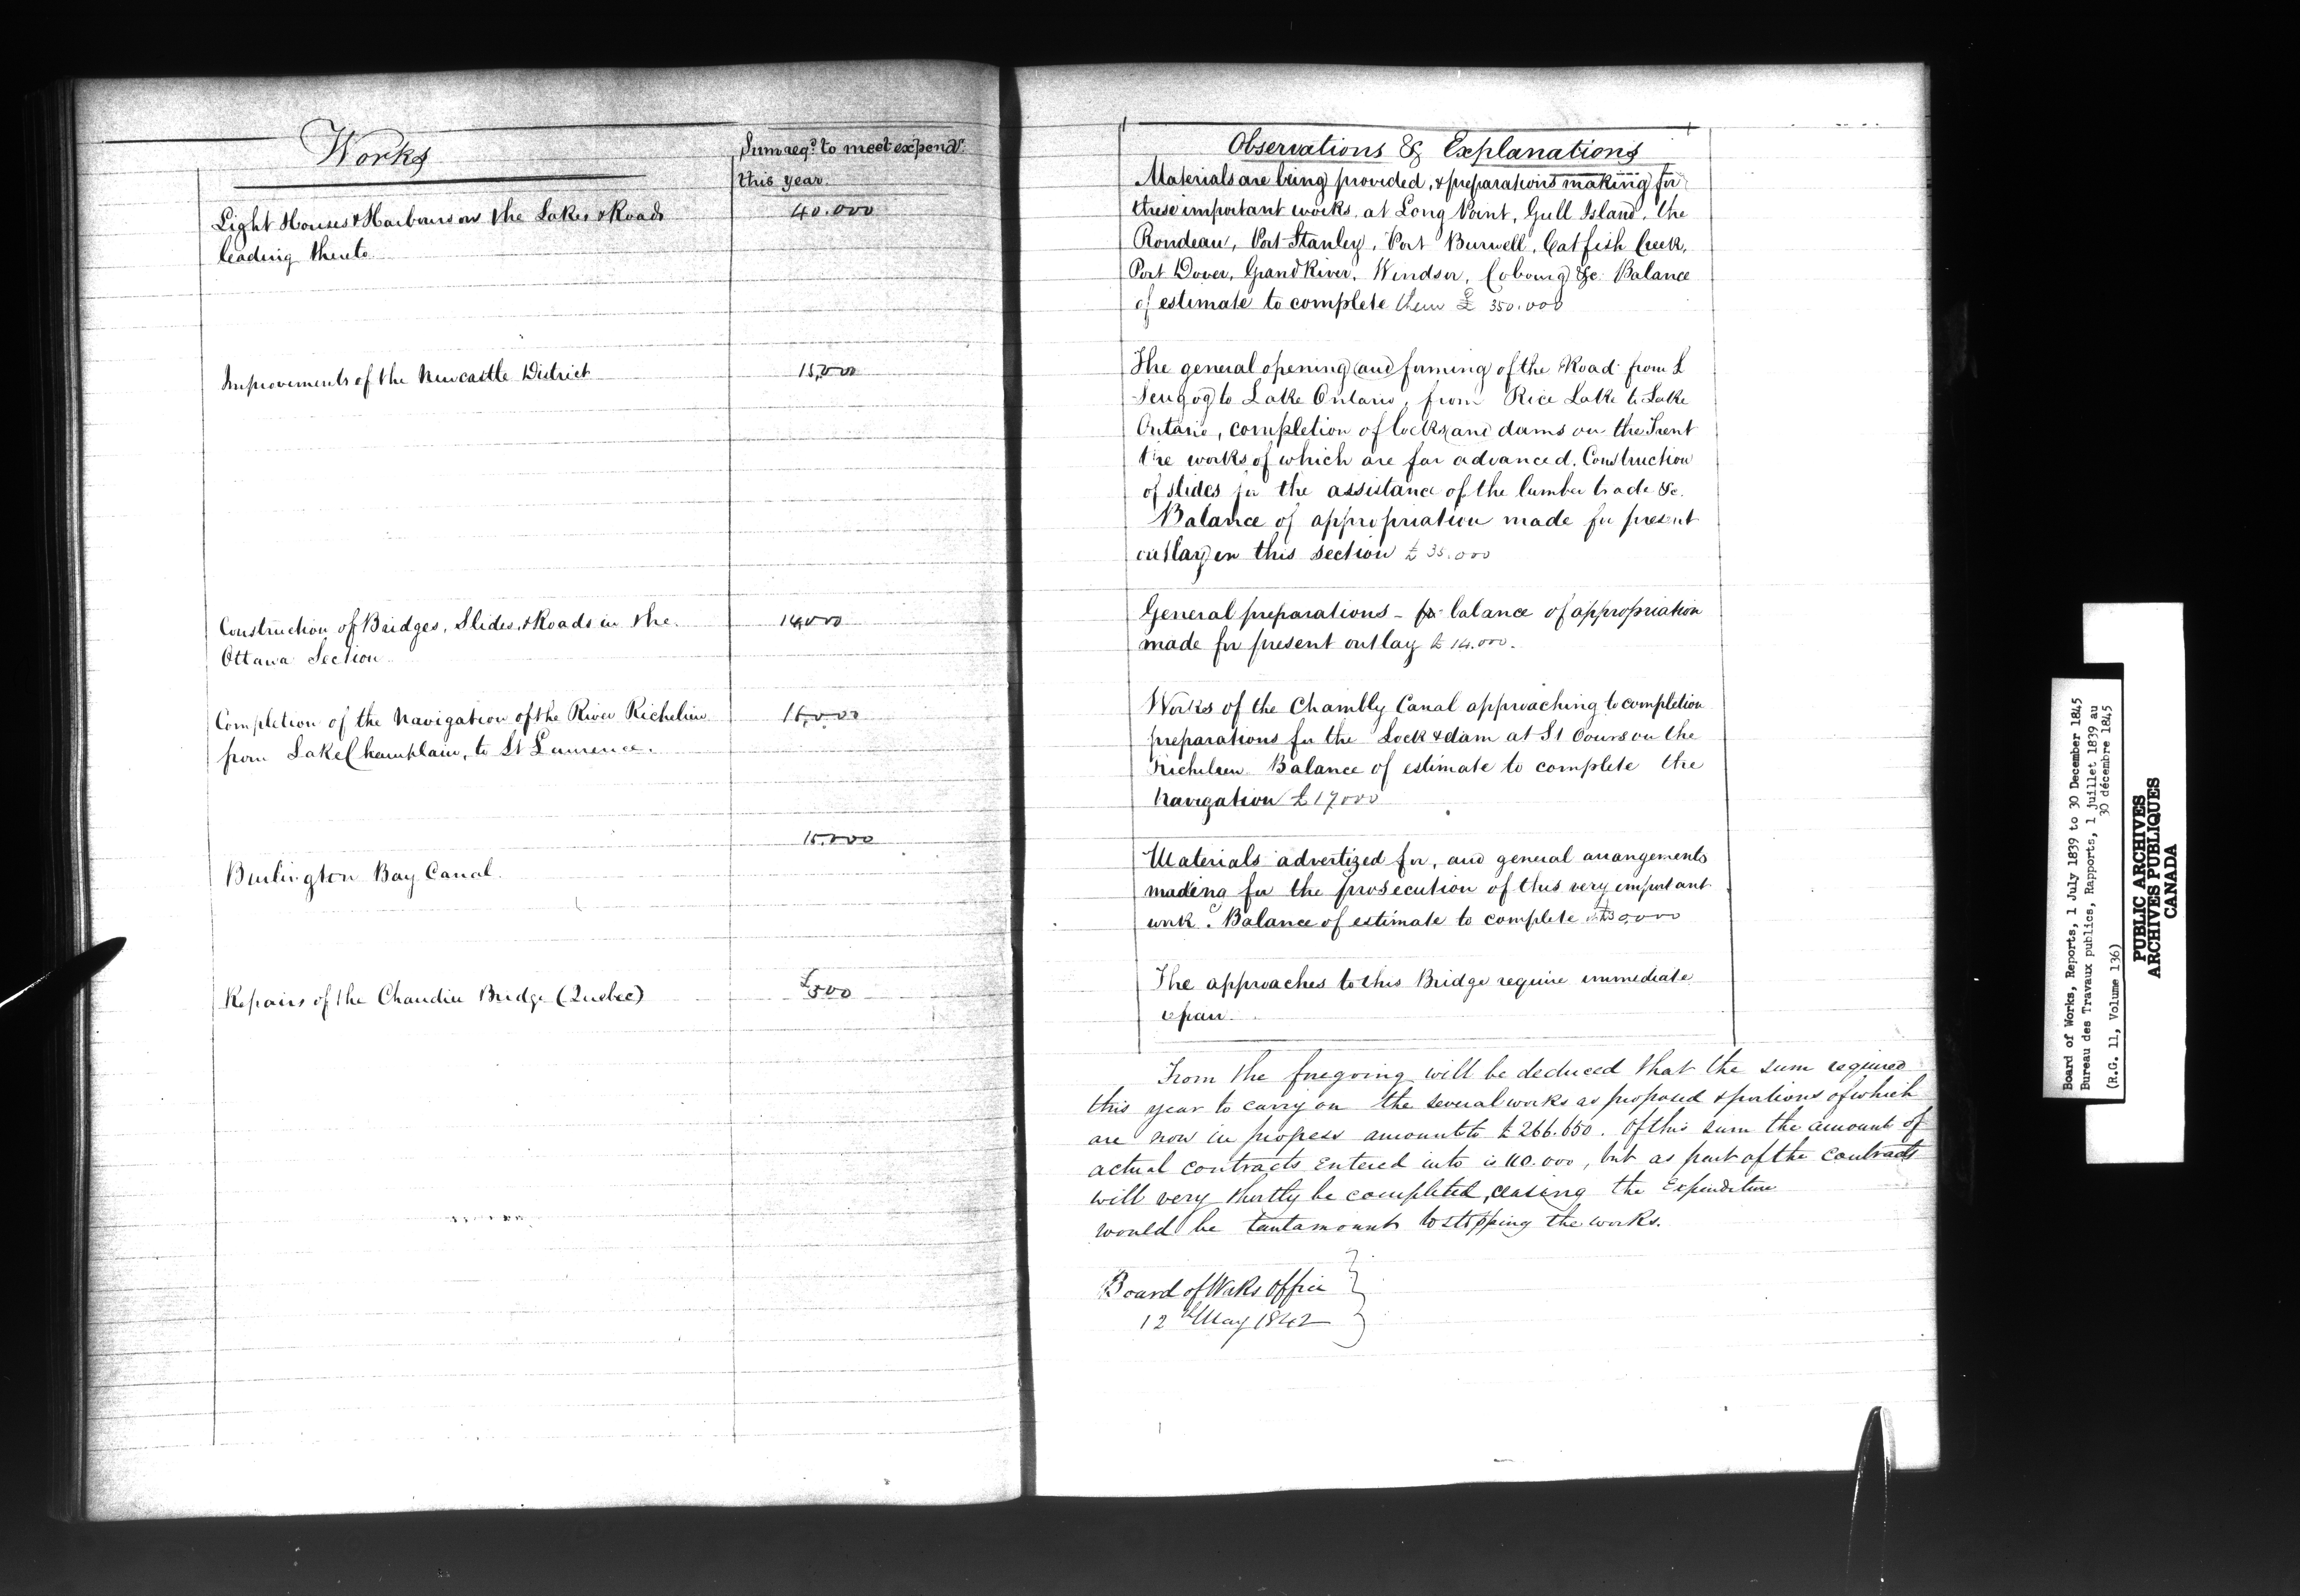 Works
Sum reqd. to meet expendr.
this year.
Light Houses & Harbours on the Lakes & Roads
leading thereto
40.000
Improvements of the Newcastle District
15,000
Construction of Bridges, Slides, & Roads in the
Ottawa Section
14,000
Completion of the Navigation of the River Richelieu
from Lake Champlain, to St Lawrence.
Burlington Bay Canal.
15,000
Repairs of the Chaudiere Bridge (Quebec)
£500
Observations & Explanations
Materials are being provided, & preparations making for
these important works at Long Point, Gull Island, the
Rondeau, Port Stanley, Port Burwell, Catfish Creek,
Port Dover, Grand River, Windsor, Cobourg &c. Balance
of estimate to complete them £ 350.000
The general opening and forming of the Road from L
Scugog to Lake Ontario, from Rice Lake to Lake
Ontario, completion of locks and dams on the Trent
the works of which are far advanced. Construction
of slides for the assistance of the lumber trade &c.
Balance of appropriation made for present
outlay in this section £ 35.000
General preparations - balance of appropriation
made for present outlay £ 14.000.
Works of the Chambly Canal approaching to completion
preparations for the Lock & dam at St Ours on the
Richelieu Balance of estimate to complete the
Navigation £17000
Materials advertized for, and general arrangements
making for the prosecution of this very important
work. Balance of estimate to complete
The approaches to this Bridge require immediate
repair.
From the foregoing will be deduced that the sum required
this year to carry on the several works as proposed & portions of which
are now in progress amounts to £ 266.650. Of this sum the amount of
actual contracts entered into is 110.000, but as part of the contracts
will very shortly be completed, ceasing the Expenditure
would be tantamount to stopping the works.
Board of Works Office
12th May 1842
Board of Works, Reports, 1 July 1839 to 30 December 1845
Bureau des Travaux publics, Rapports, 1 juillet 1839 au
30 décembre 1845
(R.G. 11, Volume 136)
PUBLIC ARCHIVES
ARCHIVES PUBLIQUES
CANADA